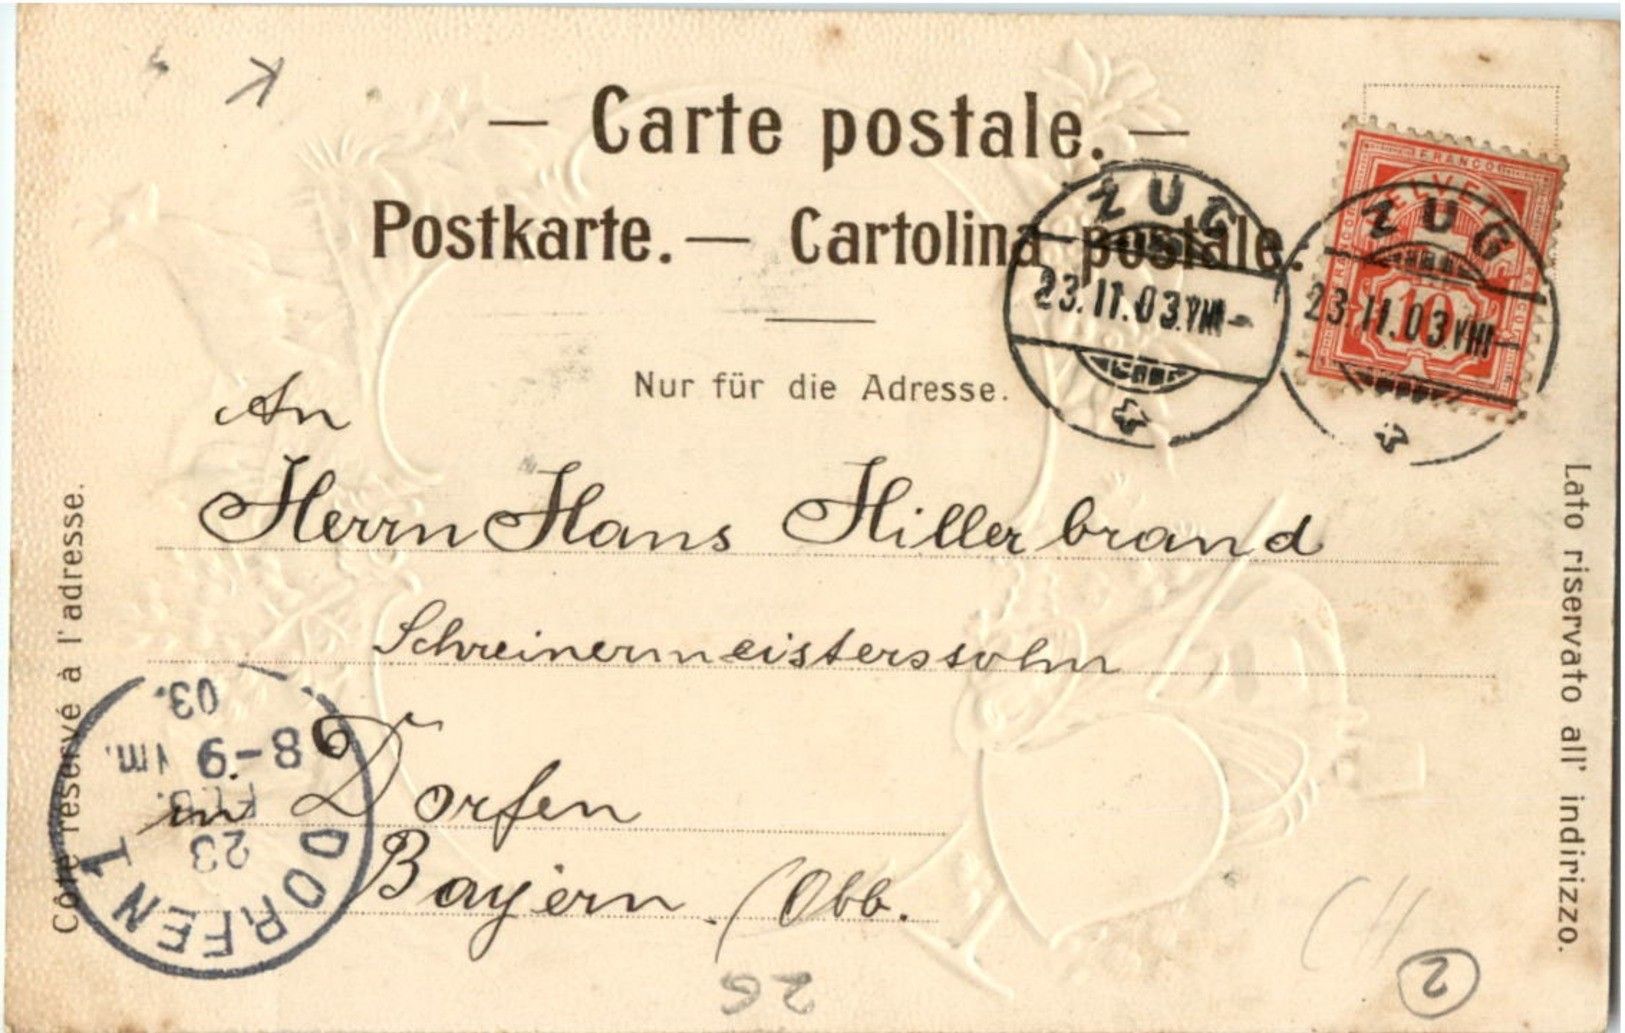 K
— Carte postale. —
Postkarte. — Cartolina postale.
Nur für die Adresse.
FRANCO
HELVETIA
10
ZUG
23.II.03.VIII–
ZUG
23.II.03.VIII–
An
Herrn Hans Hillerbrand
Schreinermeisterssohn
in Dorfen
Bayern. (Obb.
Côté réservé à l'adresse.
Lato riservato all' indirizzo.
DORFEN 1
23
FEB.
8-9 Vm.
03.
26
2